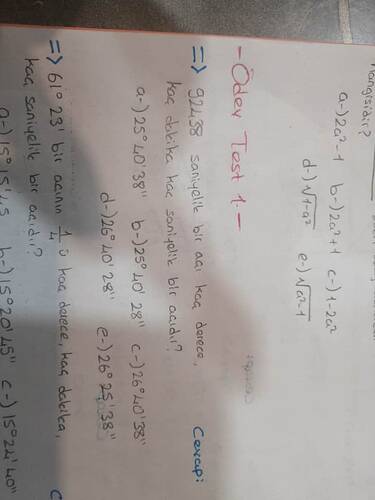 hangisidir?
a-) 2a²-1 b-) 2a²+1 c-) 1-2a²
d-) √1-a² e-) √a²-1
- Ödev Test 1 -
=> 92438 saniyelik bir açı kaç derece, Cevap:
kaç dakika kaç saniyelik bir açıdır?
a-) 25° 40' 38" b-) 25° 40' 28" c-) 26° 40' 38"
d-) 26° 40' 28" e-) 26° 25' 38"
=> 61° 23' bir açının 1/4 ü kaç derece, kaç dakika,
kaç saniyelik bir açıdır?
a-) 15° 15' 45 b-) 15° 20' 45" c-) 15° 24' 40"